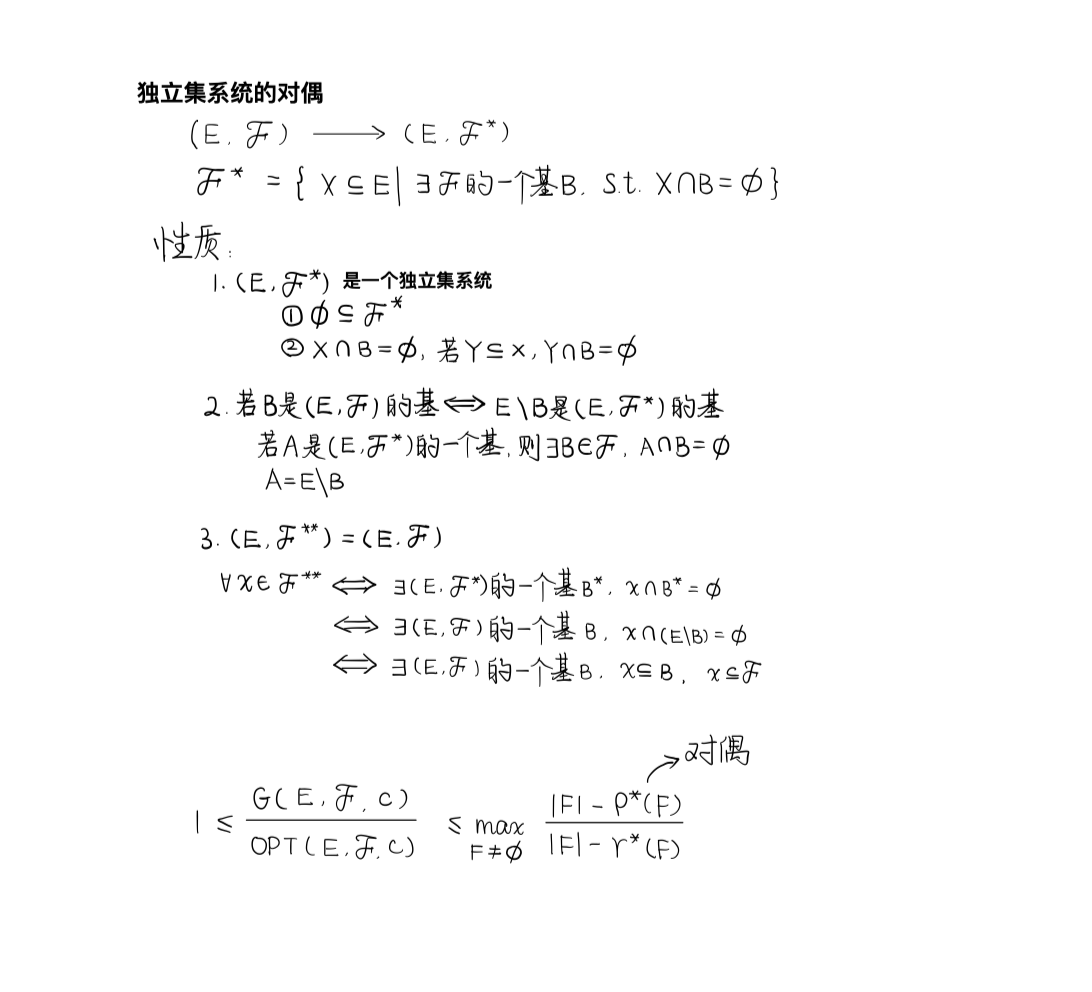 独立集系统的对偶
(E, ℱ) ⟶ (E, ℱ*)
ℱ* = { X ⊆ E | ∃ ℱ的一个基B, s.t. X∩B = ∅ }
性质:
1. (E, ℱ*) 是一个独立集系统
① ∅ ⊆ ℱ*
② X∩B = ∅, 若Y⊆X, Y∩B=∅
2. 若B是(E,ℱ)的基 ⟺ E\B是(E,ℱ*)的基
若A是(E,ℱ*)的一个基, 则∃B∈ℱ, A∩B=∅
A=E\B
3. (E, ℱ**) = (E, ℱ)
∀x∈ ℱ** ⟺ ∃(E, ℱ*)的一个基B*, x∩B* = ∅
⟺ ∃(E, ℱ)的一个基 B, x∩(E\B) = ∅
⟺ ∃(E, ℱ)的一个基B, x⊆B, x⊆ℱ
对偶
1 ≤ G(E, ℱ, c) / OPT(E, ℱ, c) ≤ max F≠∅ |F| - ρ*(F) / |F| - r*(F)